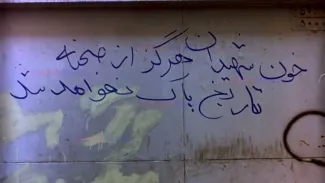 خون شهیدان هرگز از صفحه
تاریخ پاک نخواهد شد